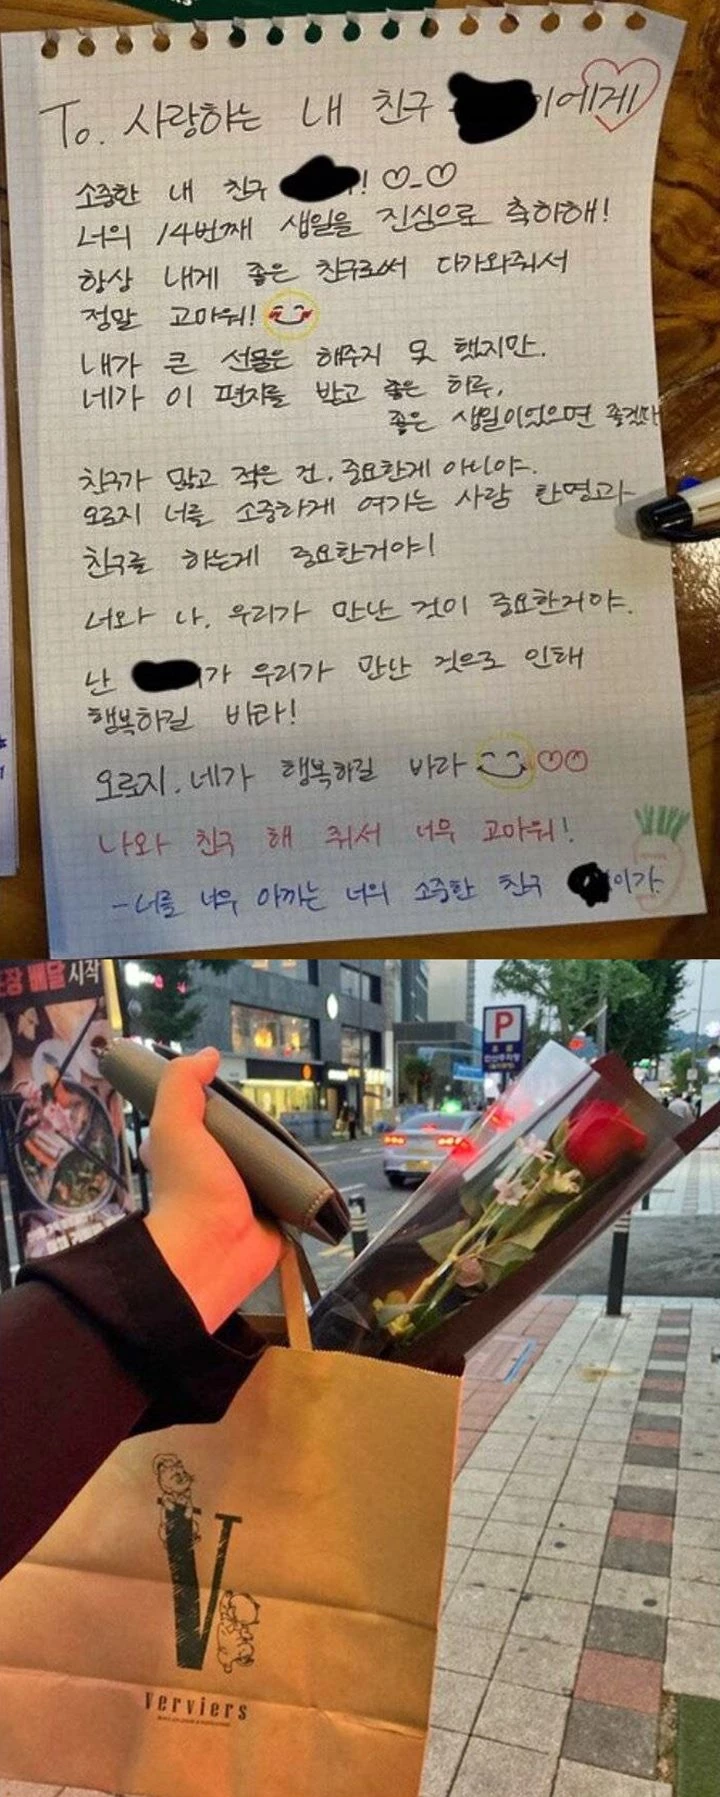 To. 사랑하는 내 친구 이에게
소중한 내 친구 ! ♡-♡
너의 14번째 생일을 진심으로 축하해!
항상 내게 좋은 친구로써 다가와줘서
정말 고마워!
내가 큰 선물은 해주지 못 했지만.
네가 이 편지를 받고 좋은 하루,
좋은 생일이었으면 좋겠다
친구가 많고 적은 건, 중요한게 아니야.
오로지 너를 소중하게 여기는 사람 한명과
친구를 하는게 중요한거야!
너와 나, 우리가 만난 것이 중요한거야.
난 가 우리가 만난 것으로 인해
행복하길 바라!
오로지, 네가 행복하길 바라
나와 친구 해 줘서 너무 고마워!
-너를 너무 아끼는 너의 소중한 친구 이가.
장 배달 시작
P
V
Verviers